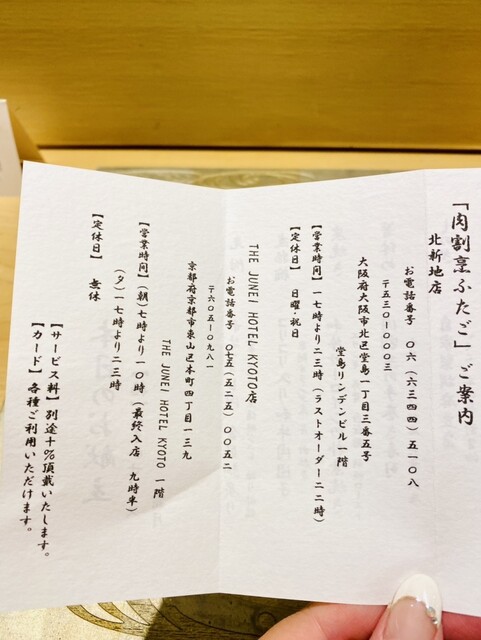 「肉割烹ふたご」ご案内
北新地店
お電話番号 〇六(六三四四)五一〇八
〒五三〇ー〇〇〇三
大阪府大阪市北区堂島一丁目三番五号
堂島リンデンビル一階
【営業時間】一七時より二三時(ラストオーダー二二時)
【定休日】 日曜・祝日
THE JUNEI HOTEL KYOTO店
お電話番号 〇七五(五二五)〇〇五二
〒六〇五ー〇九八一
京都府京都市東山区本町四丁目一三九
THE JUNEI HOTEL KYOTO 一階
【営業時間】(朝)七時より一〇時(最終入店 九時半)
(夕)一七時より二三時
【定休日】 無休
【サービス料】別途十%頂戴いたします。
【カード】各種ご利用いただけます。